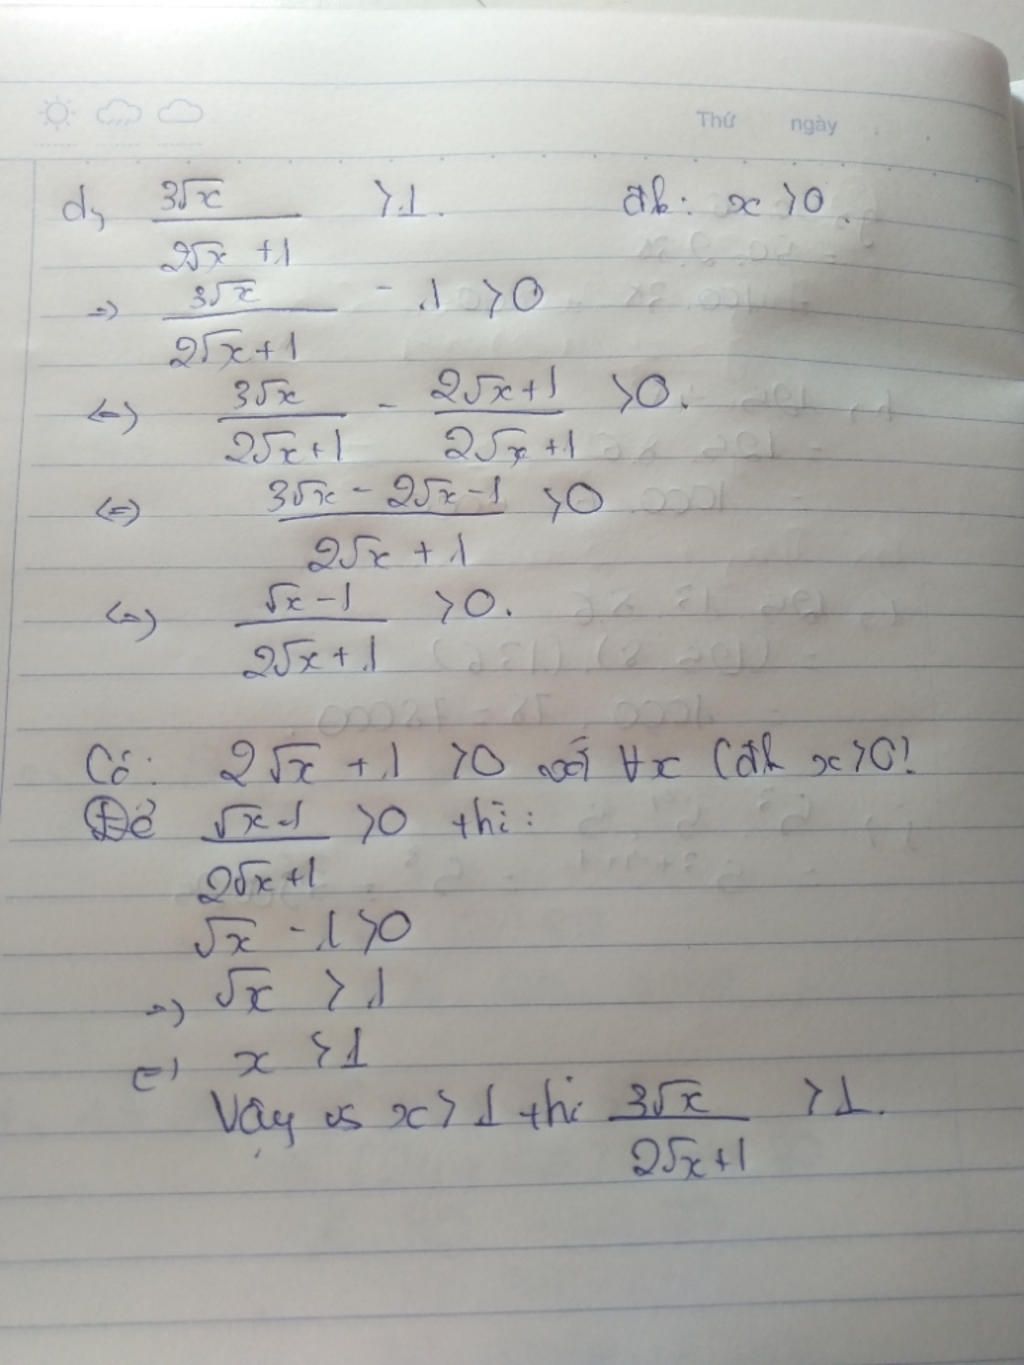 Thứ ngày
d, 3√x / 2√x + 1 > 1. đk: x > 0.
=> 3√x / 2√x + 1 - 1 > 0
<=> 3√x / 2√x + 1 - 2√x + 1 / 2√x + 1 > 0.
<=> 3√x - 2√x - 1 / 2√x + 1 > 0
<=> √x - 1 / 2√x + 1 > 0.
Có: 2√x + 1 > 0 với ∀x (đk x > 0)
Để √x - 1 / 2√x + 1 > 0 thì:
√x - 1 > 0
=> √x > 1
x > 1
Vậy vs x > 1 thì 3√x / 2√x + 1 > 1.